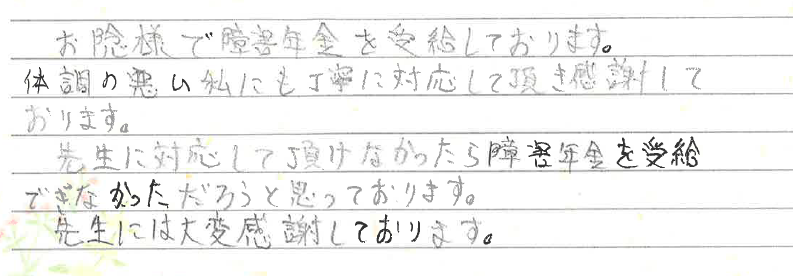 お陰様で障害年金を受給しております。
体調の悪い私にも丁寧に対応して頂き感謝して
おります。
先生に対応して頂けなかったら障害年金を受給
できなかっただろうと思っております。
先生には大変感謝しております。